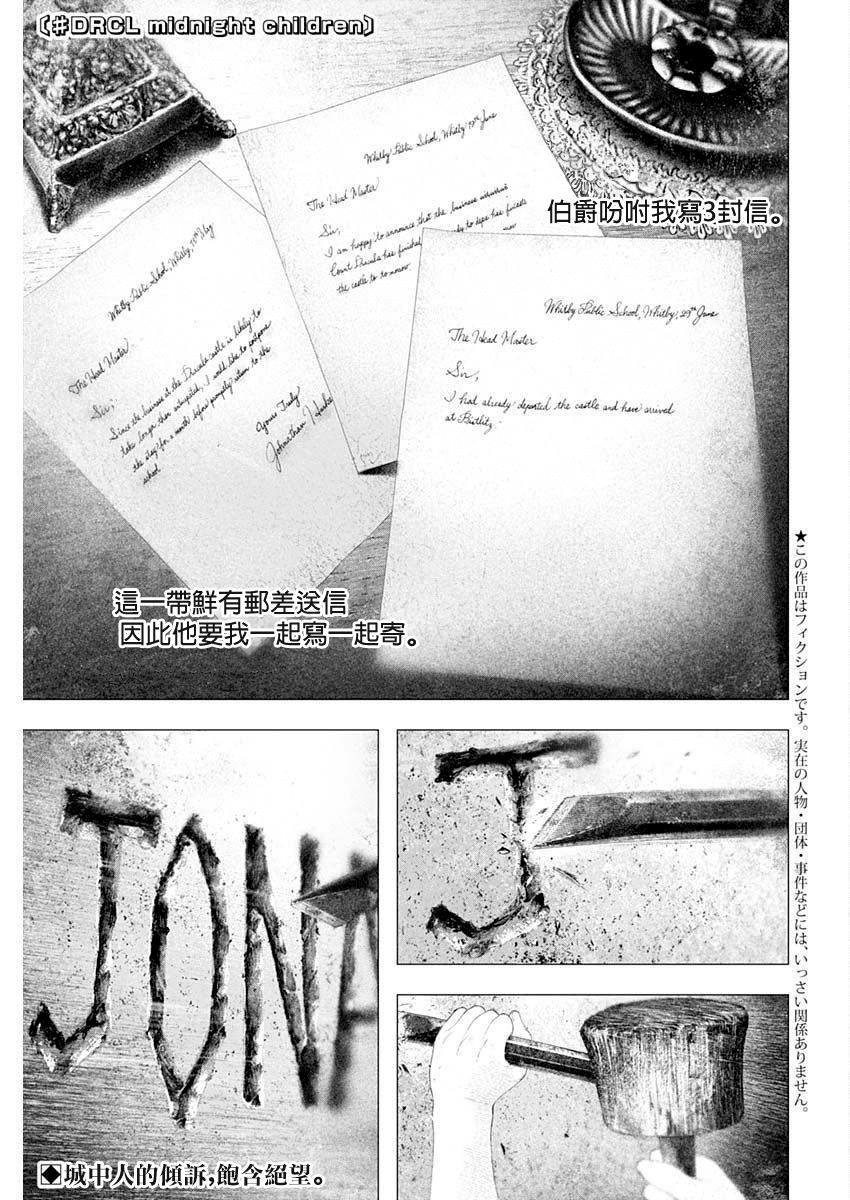 〔#DRCL midnight children〕
伯爵吩咐我寫3封信。
Whitby Public School, Whitby, 19th June
The Head Master
Sir,
I am happy to announce that the business
Count Dracula has finished
the castle to to morrow.
Whitby Public School, Whitby, 29th June
The Head Master
Sir,
I had already departed the castle and have arrived
at Bistlitz.
Whitby Public School, Whitby,
The Head Master
Sir,
Since the business at the Dracula castle is likely to
take longer than anticipated, I would like to postpone
the stay for a month before promptly return to the
school.
Yours Truly
Johnathan
這一帶鮮有郵差送信
因此他要我一起寫一起寄。
★この作品はフィクションです。実在の人物・団体・事件などには、いっさい関係ありません。
J
JONA
◆城中人的傾訴,飽含絕望。